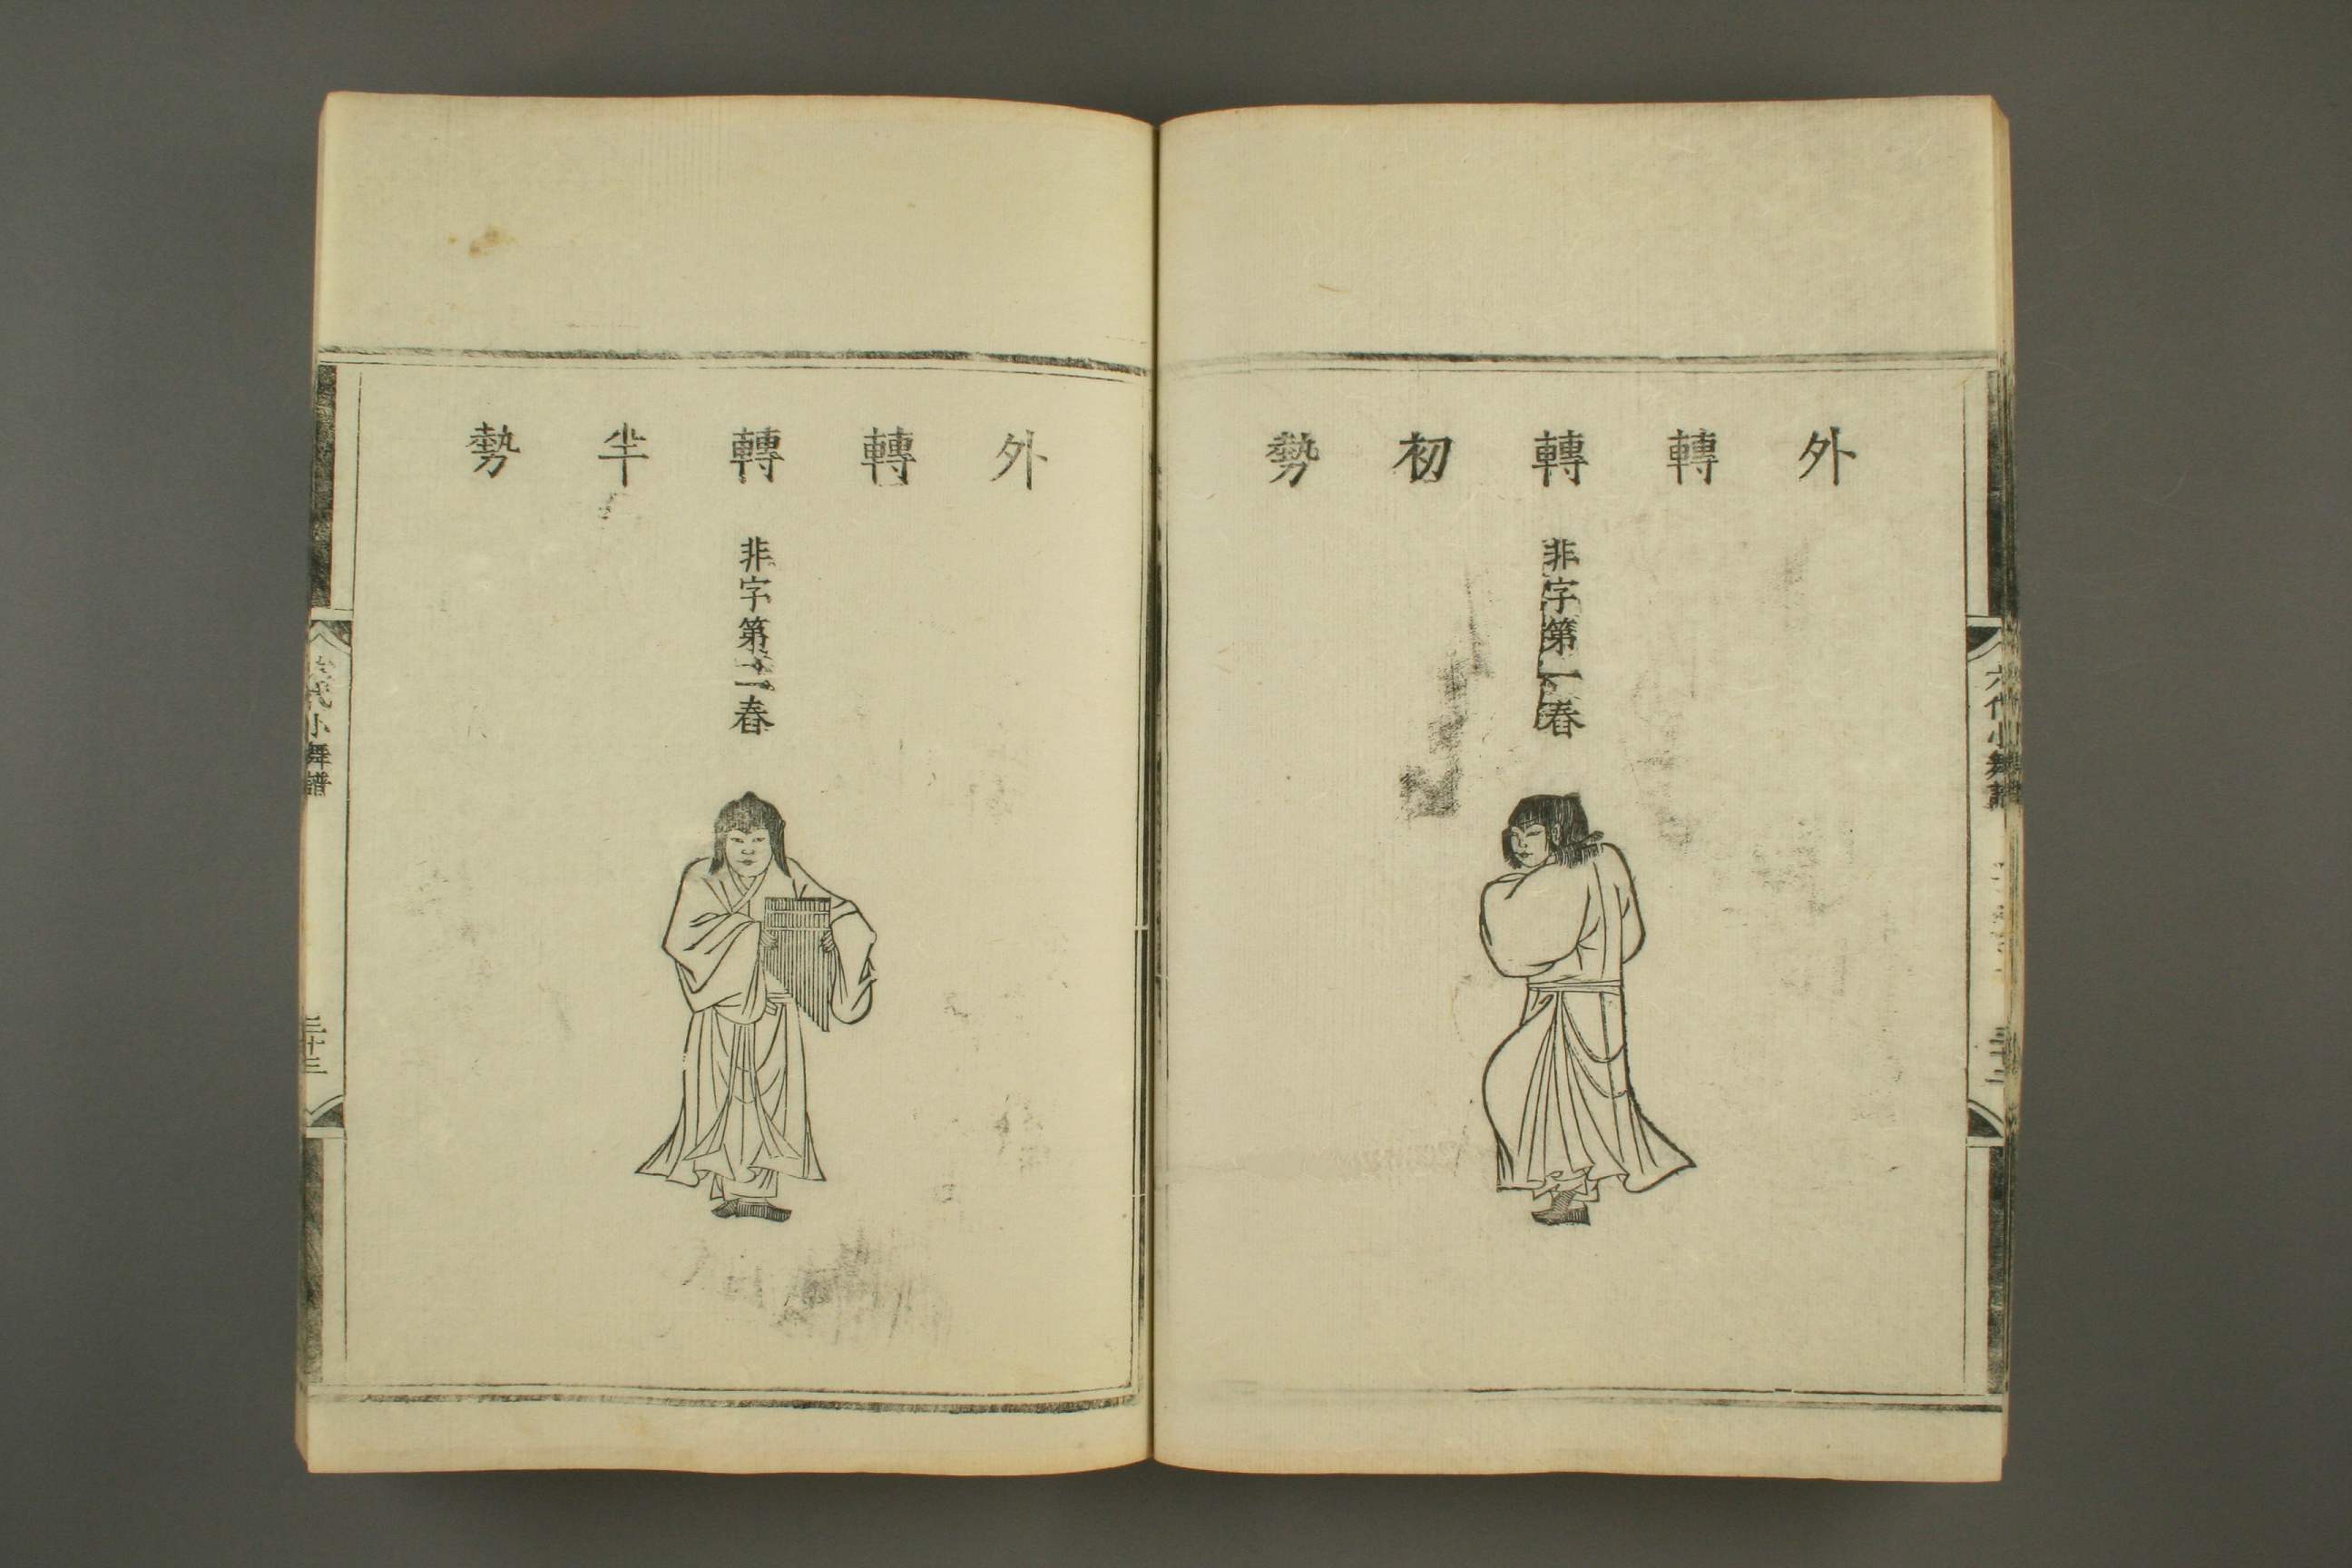 外轉轉初勢
非字第一舂
外轉轉半勢
非字第二舂
六代小舞譜
三十二
六代小舞譜
三十三